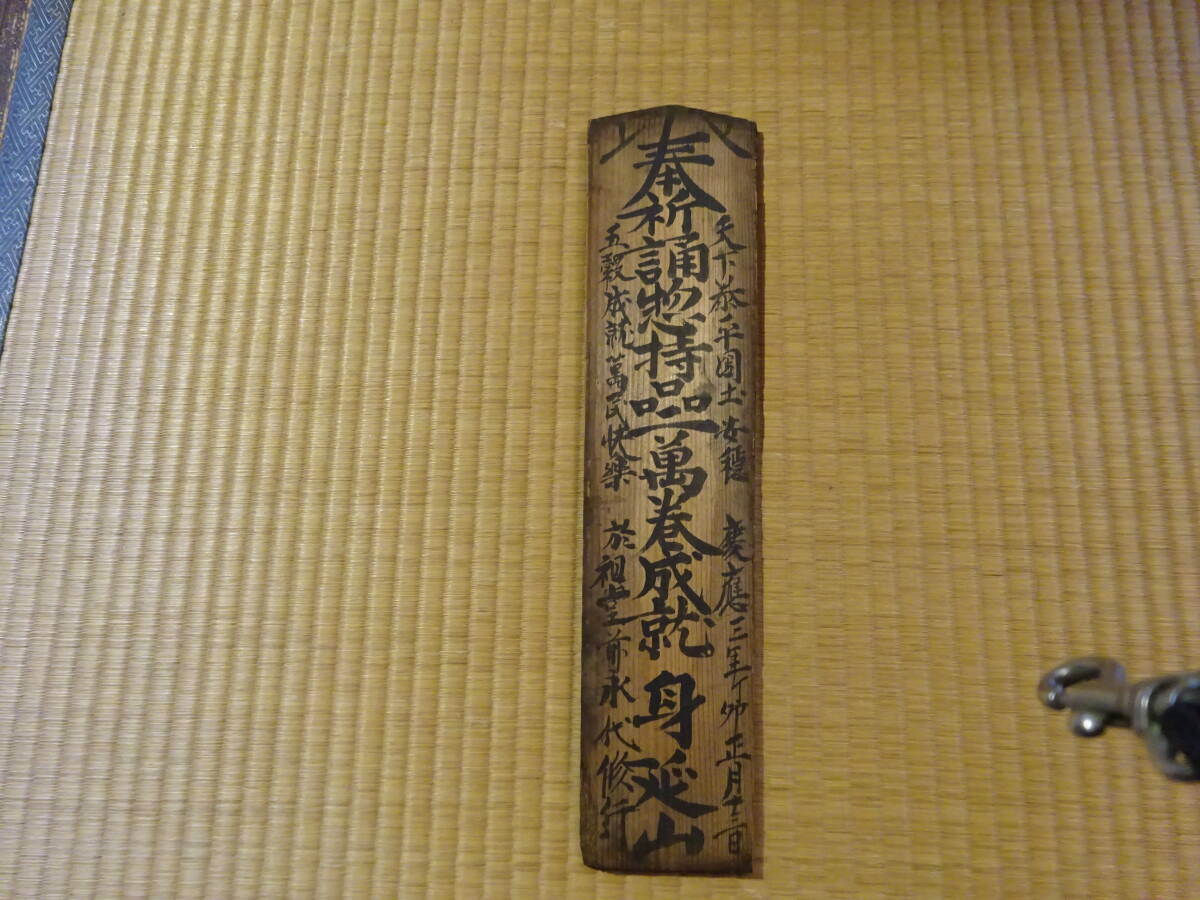 天下泰平國土安穏 慶應三年丁卯正月十三日
奉祈誦惣持品一萬巻成就 身延山
五穀成就萬民快楽 於祖堂前永代修行